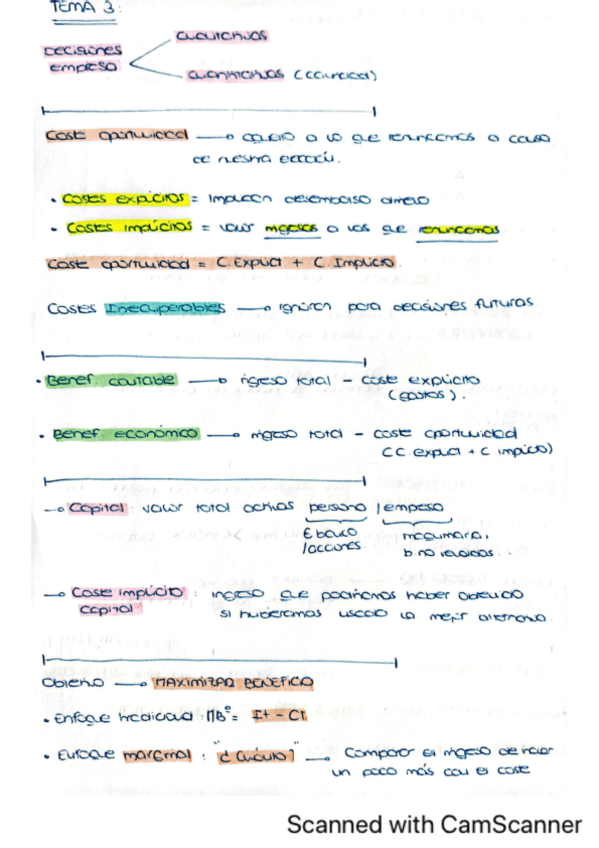 TEMA 3:
Decisiones empresa
cualitativas
cuantitativas (cantidad)
Coste oportunidad → aquello a lo que renunciamos a causa
de nuestra elección.
• Costes explícitos = Implican desembolso dinero
• Costes implícitos = valor ingresos a los que renunciamos
Coste oportunidad = C. Explícit + C. Implícito.
Costes Irrecuperables → ignoran para decisiones futuras
• Benef. contable → ingreso total - coste explícito
(gastos).
• Benef. económico → ingreso total - coste oportunidad
(C. explict + C implícito)
→ Capital: valor total activos persona / empresa
€ banco
/acciones..
maquinaria,
b. no vendidos...
→ Coste implícito capital: ingreso que podríamos haber obtenido
si hubiéramos usado la mejor alternativa.
Objetivo → MAXIMIZAR BENEFICIO
• Enfoque tradicional: = It - Ct
• Enfoque marginal: "¿Cuánto?" → Comparar el ingreso de hacer
un poco más con el coste
Scanned with CamScanner